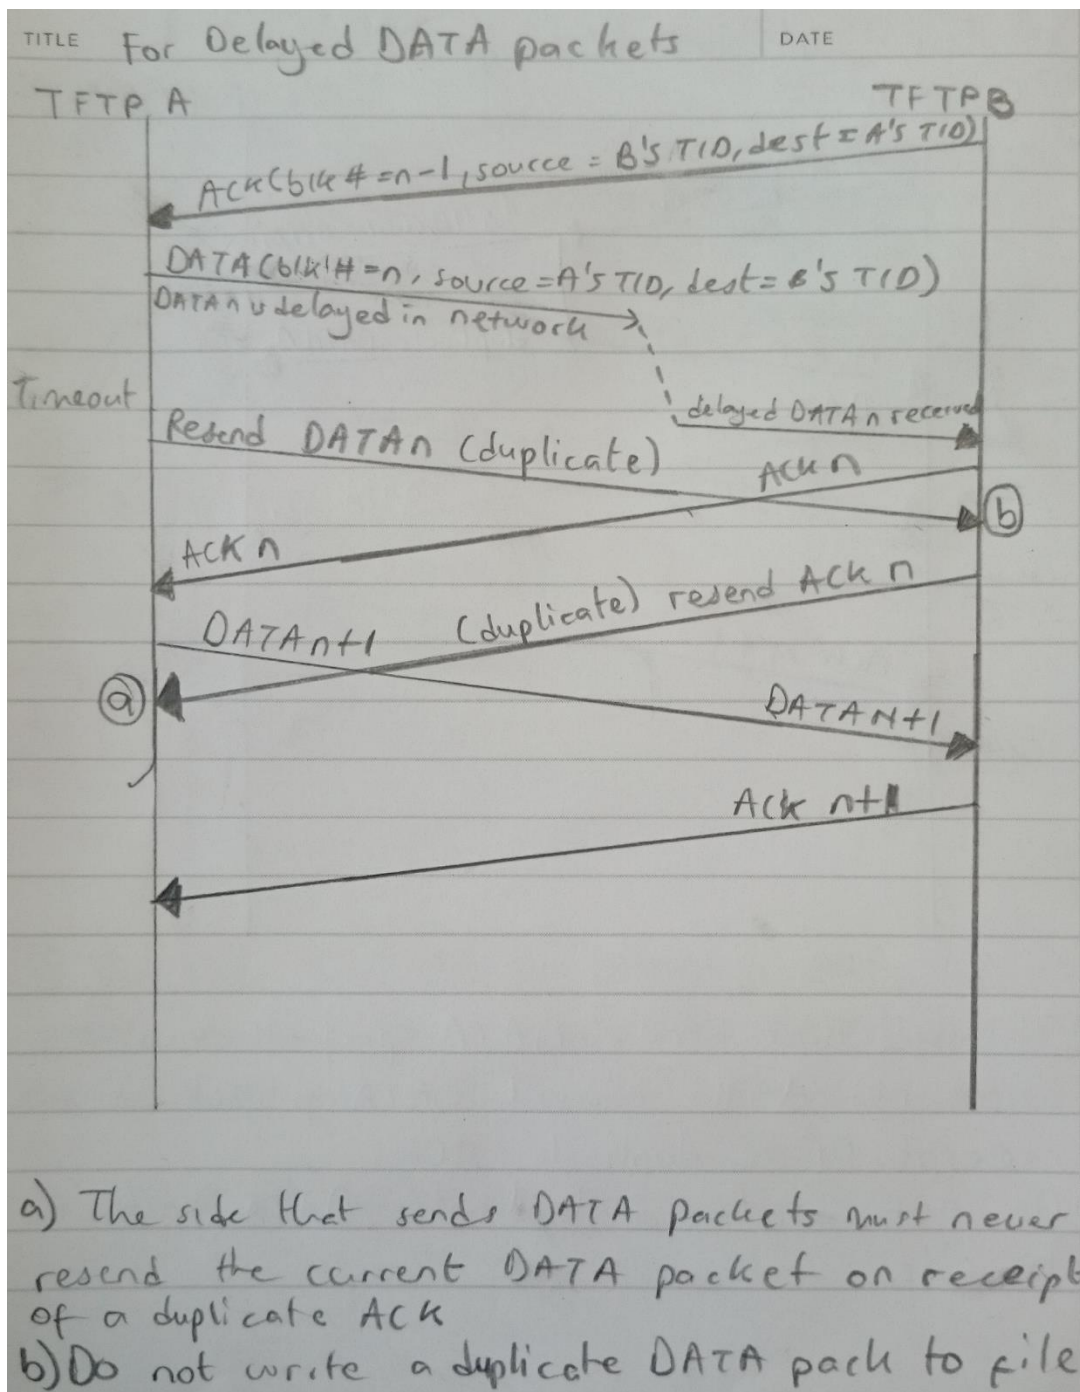 TITLE For Delayed DATA packets DATE
TFTP A TFTP B
ACK(blk# = n-1, source = B's TID, dest = A's TID)
DATA(blk# = n, source = A's TID, dest = B's TID)
DATA n is delayed in network
Timeout
delayed DATA n received
Resend DATA n (duplicate)
ACK n
b
ACK n
(duplicate) resend ACK n
DATA n+1
a
DATA N+1
ACK n+1
a) The side that sends DATA packets must never
resend the current DATA packet on receipt
of a duplicate ACK
b) Do not write a duplicate DATA pack to file